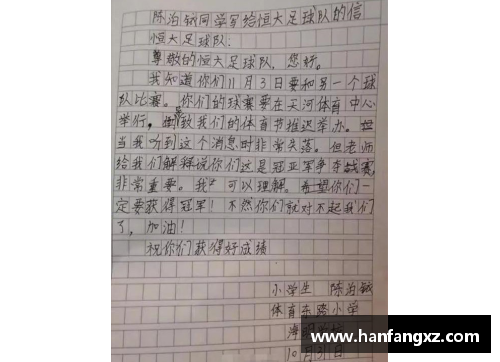 陈泊铭同学写给恒大足球队的信
恒大足球队:
尊敬的恒大足球队,您好。
我知道你们11月3日要和另一个球
队比赛。你们的球赛要在天河体育中心
举行,导致我们的体育节推迟举办。
当我听到这个消息时非常失落。但老师
给我们解释说你们这是冠亚军争夺战赛,
非常重要。我 可以理解。希望你们一
定要获得冠军!不然你们就对不起我们
了,加油!
祝你们获得好成绩
小学生 陈泊铭
体育东路小学
海明
10月31日
www.hanfangxz.com